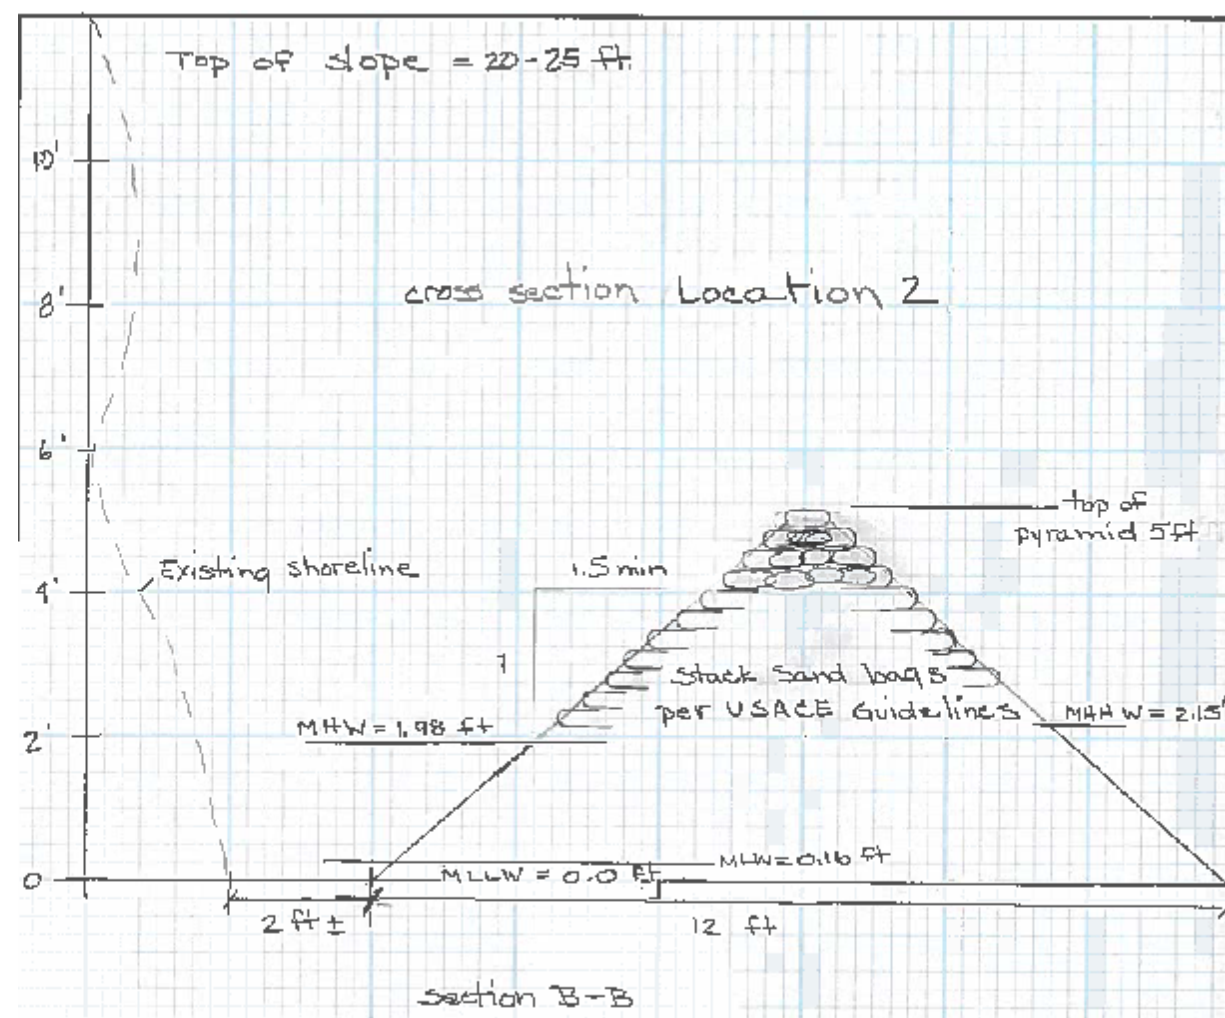 Top of slope = 20-25 ft.
10'
8'
cross section Location 2
6'
top of
pyramid 5ft
Existing shoreline
4'
1.5 min
1
Stack Sand bags
per USACE Guidelines
MHHW = 2.15'
MHW = 1.98 ft
2'
MLW = 0.16 ft
MLLW = 0.0 ft
0
2 ft ±
12 ft
section B-B